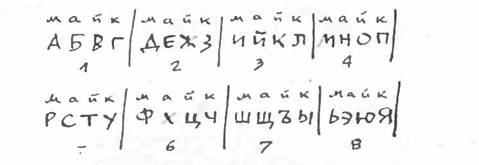 майк | майк | майк | майк |
АБВГ | ДЕЖЗ | ИЙКЛ | МНОП |
1 2 3 4
майк | майк | майк | майк |
РСТУ | ФХЦЧ | ШЩЪЫ | ЬЭЮЯ |
- 6 7 8